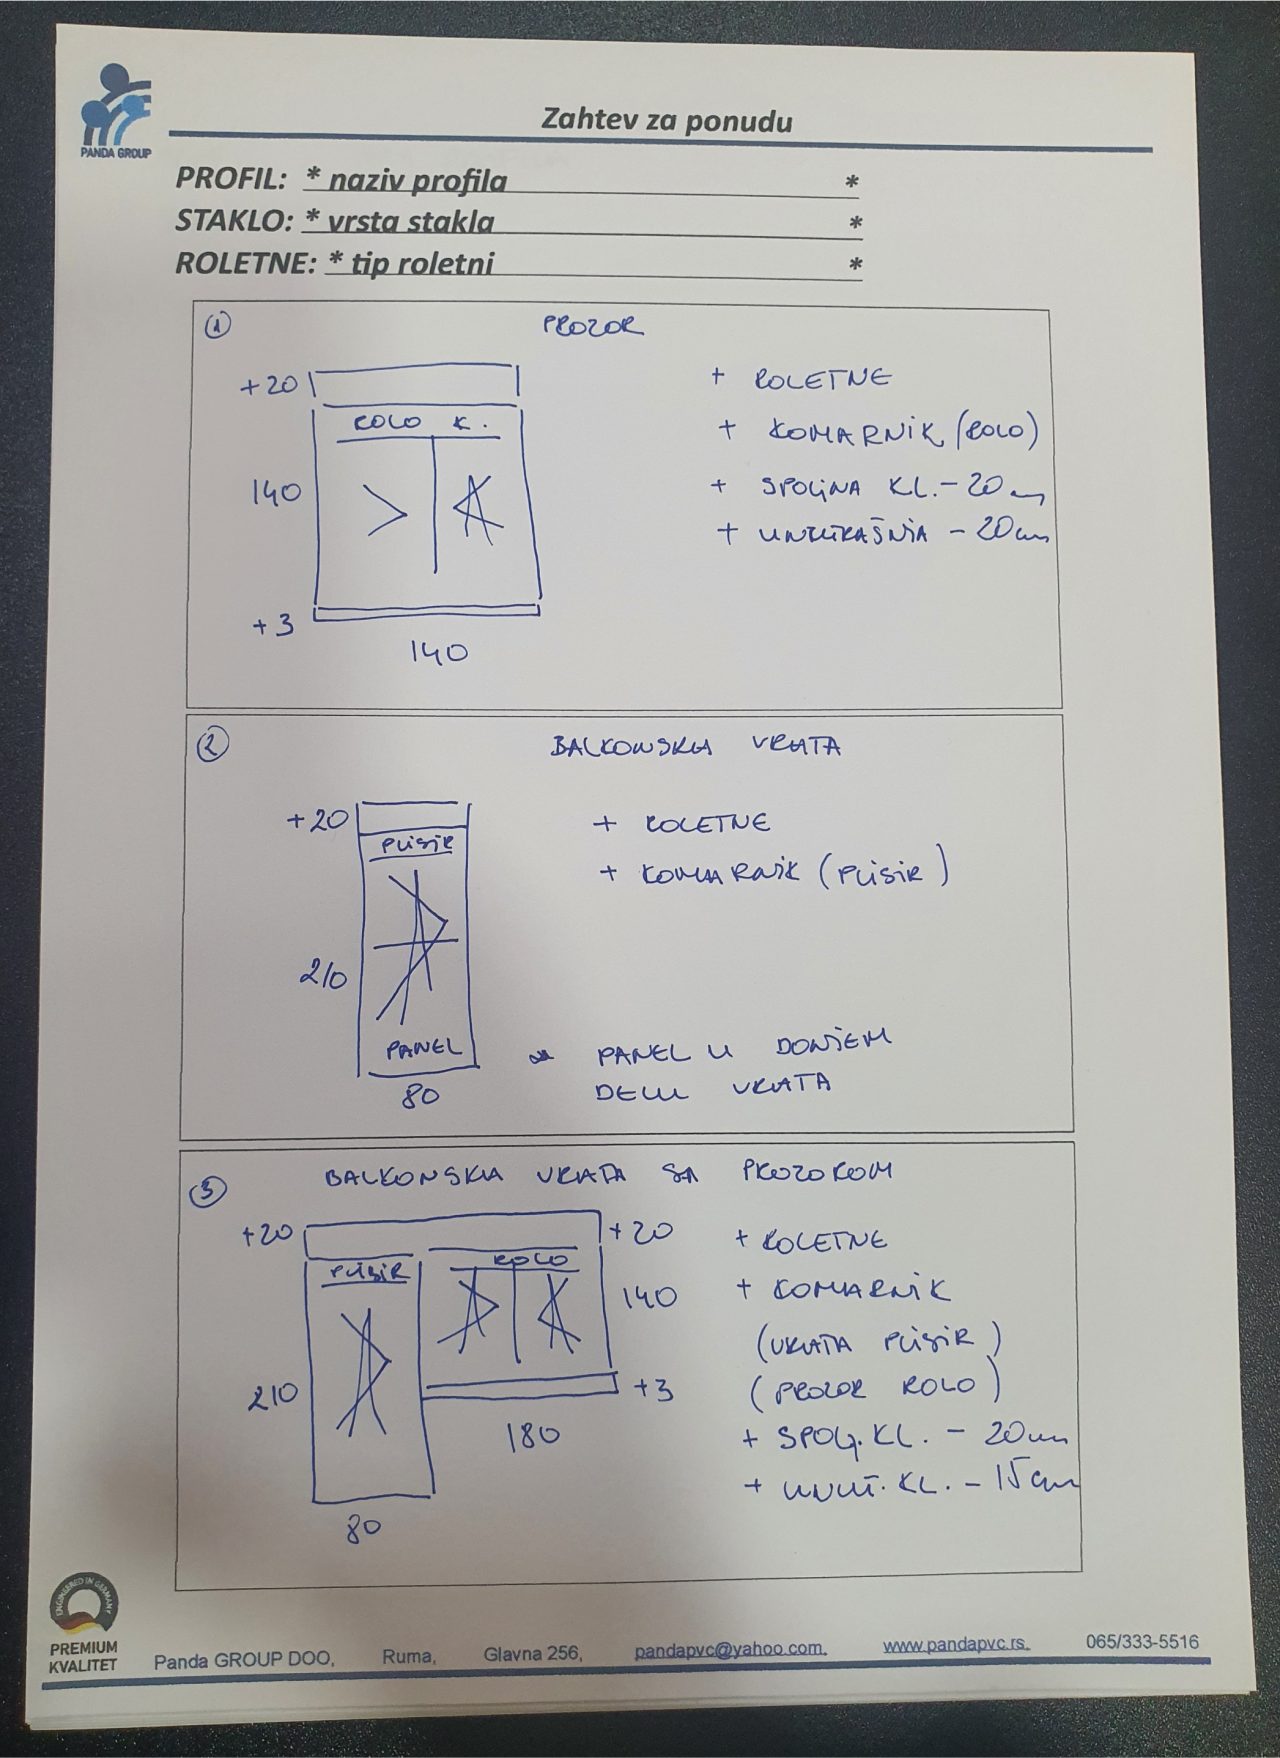 PANDA GROUP
Zahtev za ponudu
PROFIL: * naziv profila *
STAKLO: * vrsta stakla *
ROLETNE: * tip roletni *
1 PROZOR
+20
ROLO K.
140
+3
140
+ ROLETNE
+ KOMARNIK (ROLO)
+ SPOLJNA KL. - 20 cm
+ UNUTRAŠNJA - 20cm
2 BALKONSKA VRATA
+20
PLISIR
210
PANEL
80
+ ROLETNE
+ KOMARNIK (PLISIR)
PANEL U DONJEM
DELU VRATA
3 BALKONSKA VRATA SA PROZOROM
+20
+20
PLISIR
ROLO
140
210
+3
180
80
+ ROLETNE
+ KOMARNIK
(VRATA PLISIR)
(PROZOR ROLO)
+ SPOLJ. KL. - 20cm
+ UNUT. KL. - 15cm
ENGINEERED IN GERMANY
PREMIUM
KVALITET
Panda GROUP DOO, Ruma, Glavna 256, pandapvc@yahoo.com, www.pandapvc.rs, 065/333-5516